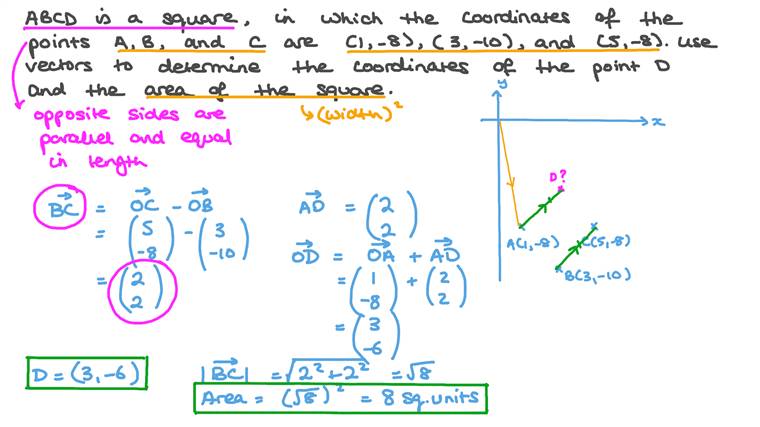 ABCD is a square, in which the coordinates of the
points A, B, and C are (1,-8), (3,-10), and (5,-8). Use
vectors to determine the coordinates of the point D
and the area of the square.
opposite sides are
parallel and equal
in length
↳(width)²
y
x
D?
A(1,-8)
C(5,-8)
B(3,-10)
→BC = →OC - →OB
= (5 -8) - (3 -10)
= (2 2)
→AD = (2 2)
→OD = →OA + →AD
= (1 -8) + (2 2)
= (3 -6)
D = (3,-6)
|→BC| = √2²+2² = √8
Area = (√8)² = 8 sq.units